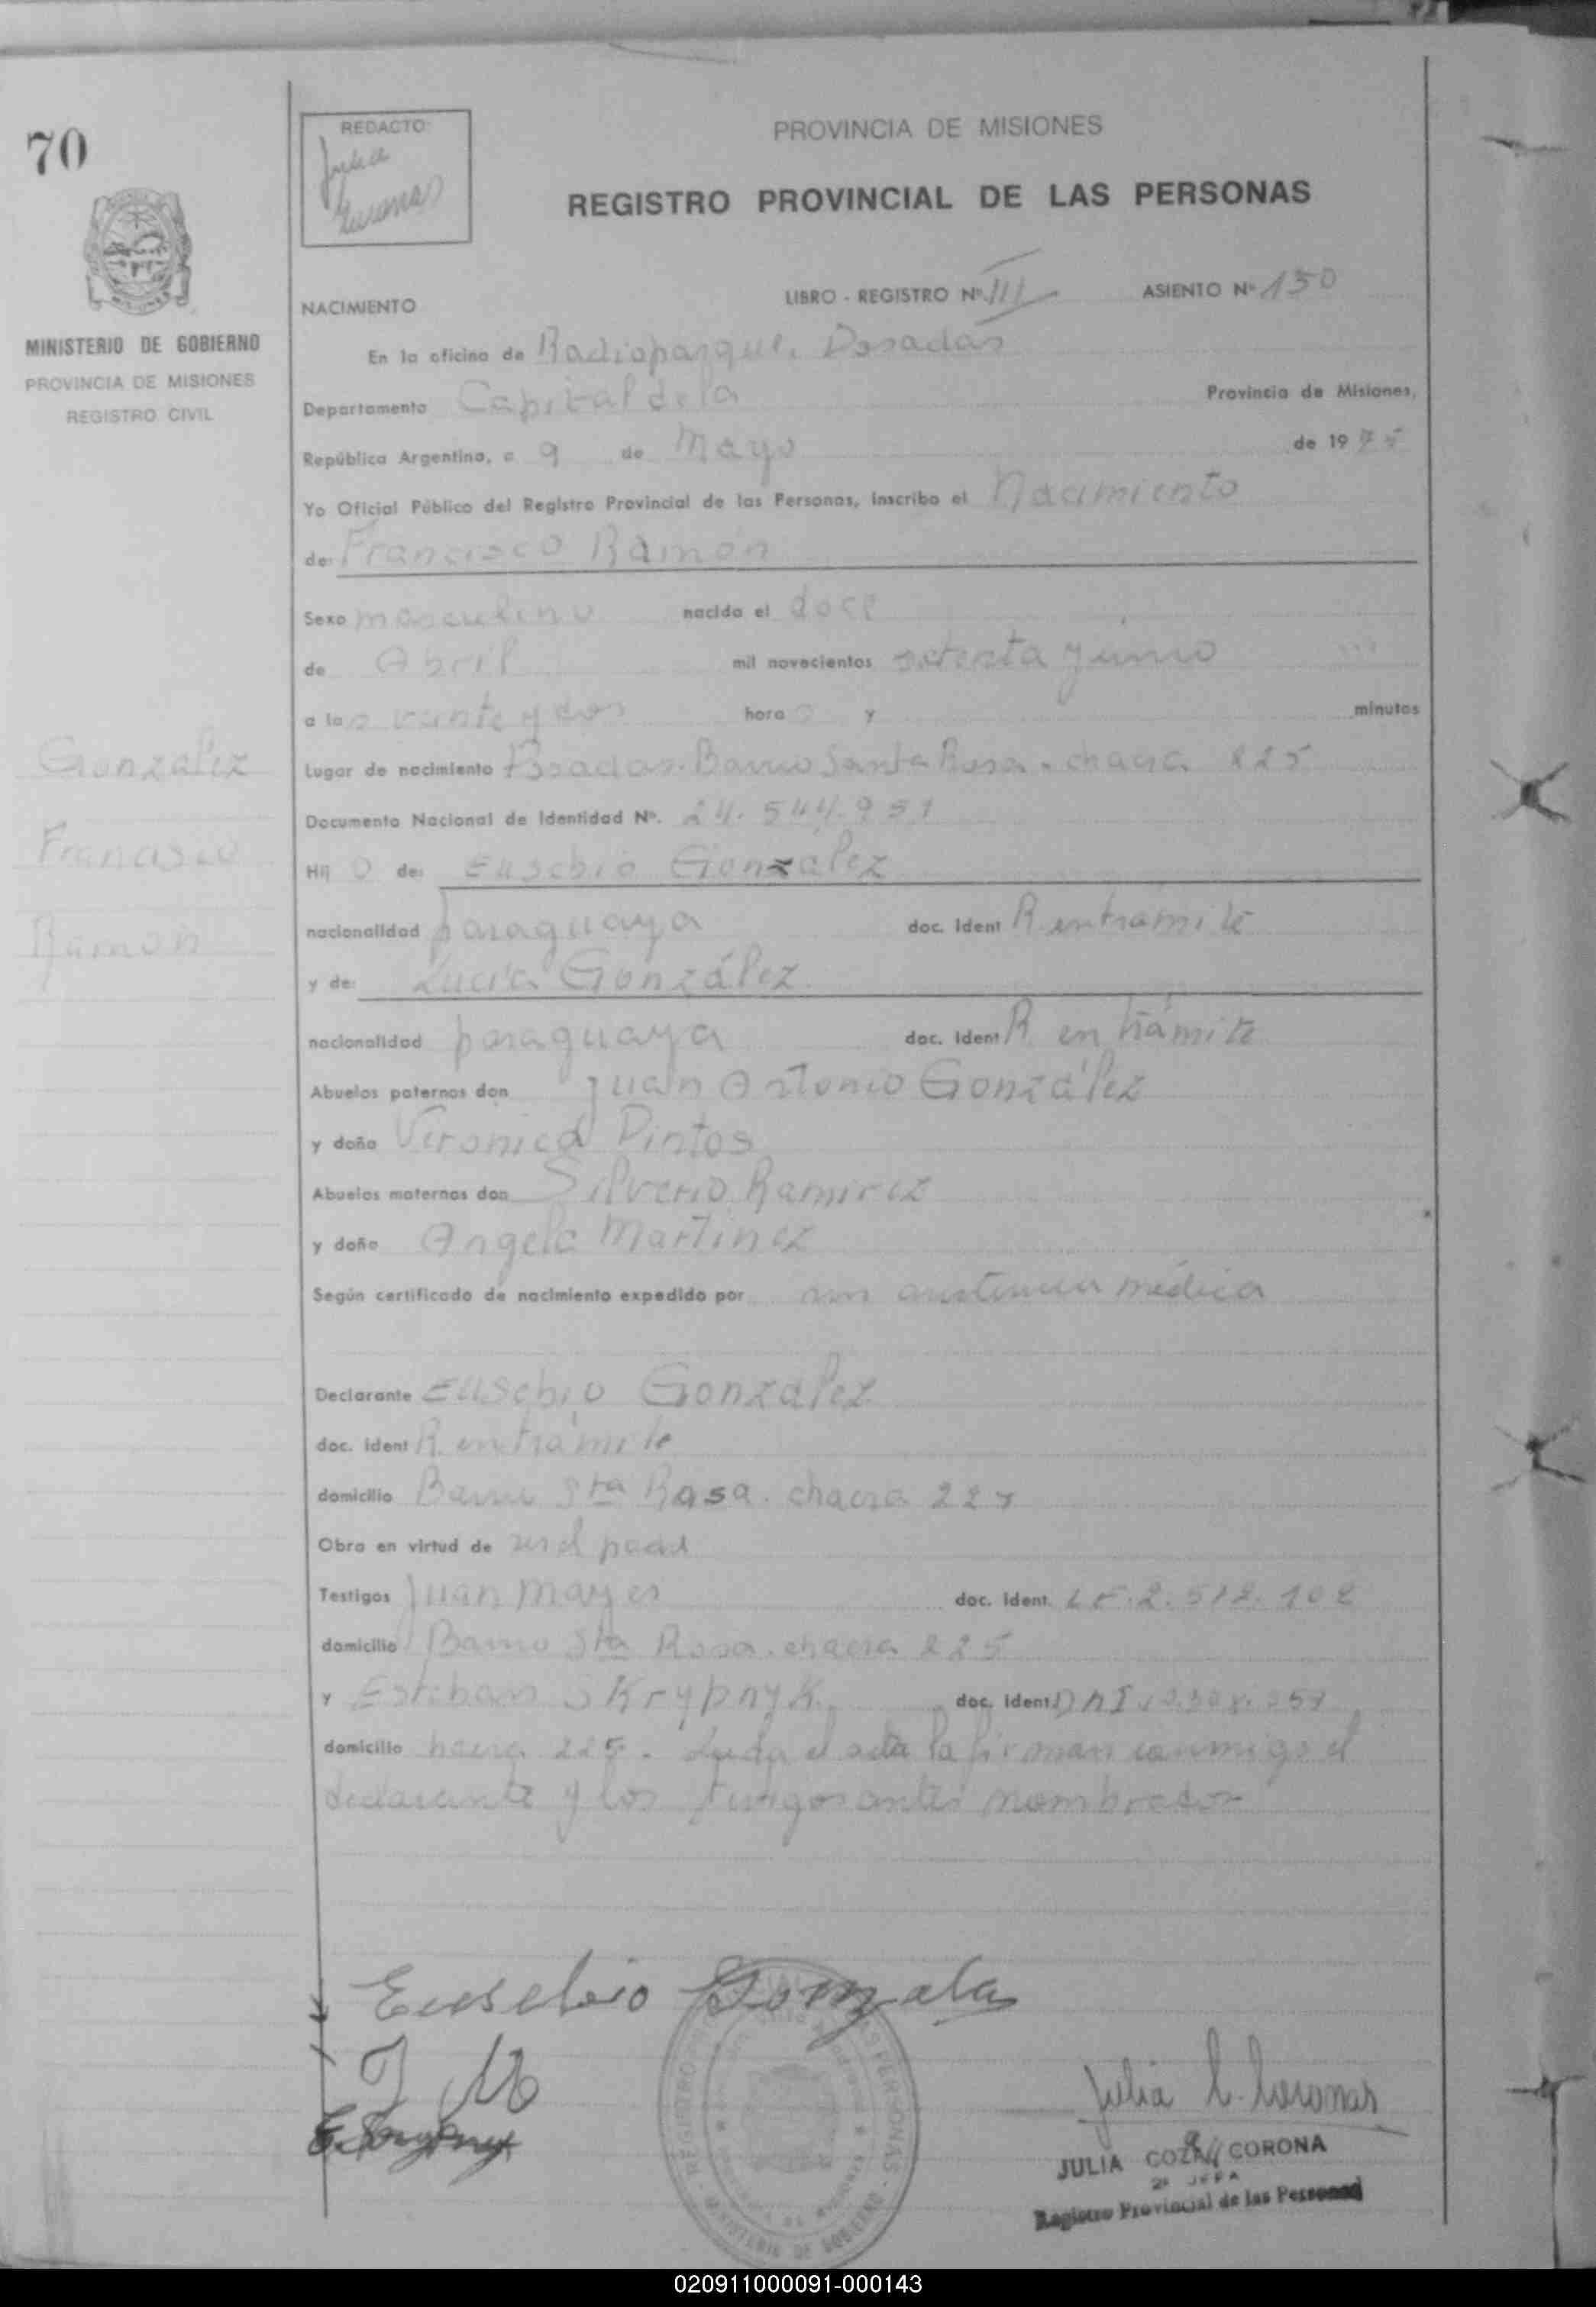 70
REDACTO:
Julia
PROVINCIA DE MISIONES
REGISTRO PROVINCIAL DE LAS PERSONAS
NACIMIENTO
LIBRO - REGISTRO Nº III
ASIENTO Nº 150
MINISTERIO DE GOBIERNO
PROVINCIA DE MISIONES
REGISTRO CIVIL
En la oficina de Radioparque. Posadas
Departamento Capital de la Provincia de Misiones,
República Argentina, a 9 de Mayo de 1975
Yo Oficial Público del Registro Provincial de las Personas, inscribo el Nacimiento
de: Francisco Ramón
Sexo masculino nacido el doce
de Abril mil novecientos setenta y uno
a las veinte y dos horas y minutos
Gonzalez
Lugar de nacimiento Posadas. Barrio Santa Rosa. chacra 225
Documento Nacional de Identidad Nº. 24.544.951
Francisco
Hij o de: Eusebio Gonzalez
nacionalidad paraguaya doc. Ident R. en tramite
Ramon
y de: Lucia González
nacionalidad paraguaya doc. Ident R en trámite
Abuelos paternos don Juan Antonio González
y doña Veronica Pintos
Abuelos maternos don Silverio Ramirez
y doña Angela Martinez
Según certificado de nacimiento expedido por sin asistencia médica
Declarante Eusebio González
doc. ident R. en trámite
domicilio Barrio Sta Rosa. chacra 225
Obra en virtud de ser el padre
Testigos Juan Mayer doc. Ident. LE. 2.512.102
domicilio Barrio Sta Rosa. chacra 225
y Esteban Skrypnyk. doc. Ident. DNI
domicilio 225. Leída el acta la firman conmigo el
declarante y los testigos antes nombrados
Eusebio Gonzalez
J M
Julia Coronas
JULIA CORONA
2ª JEFA
Registro Provincial de las Personas
REGISTRO PROVINCIAL DE LAS PERSONAS
MINISTERIO DE GOBIERNO
020911000091-000143